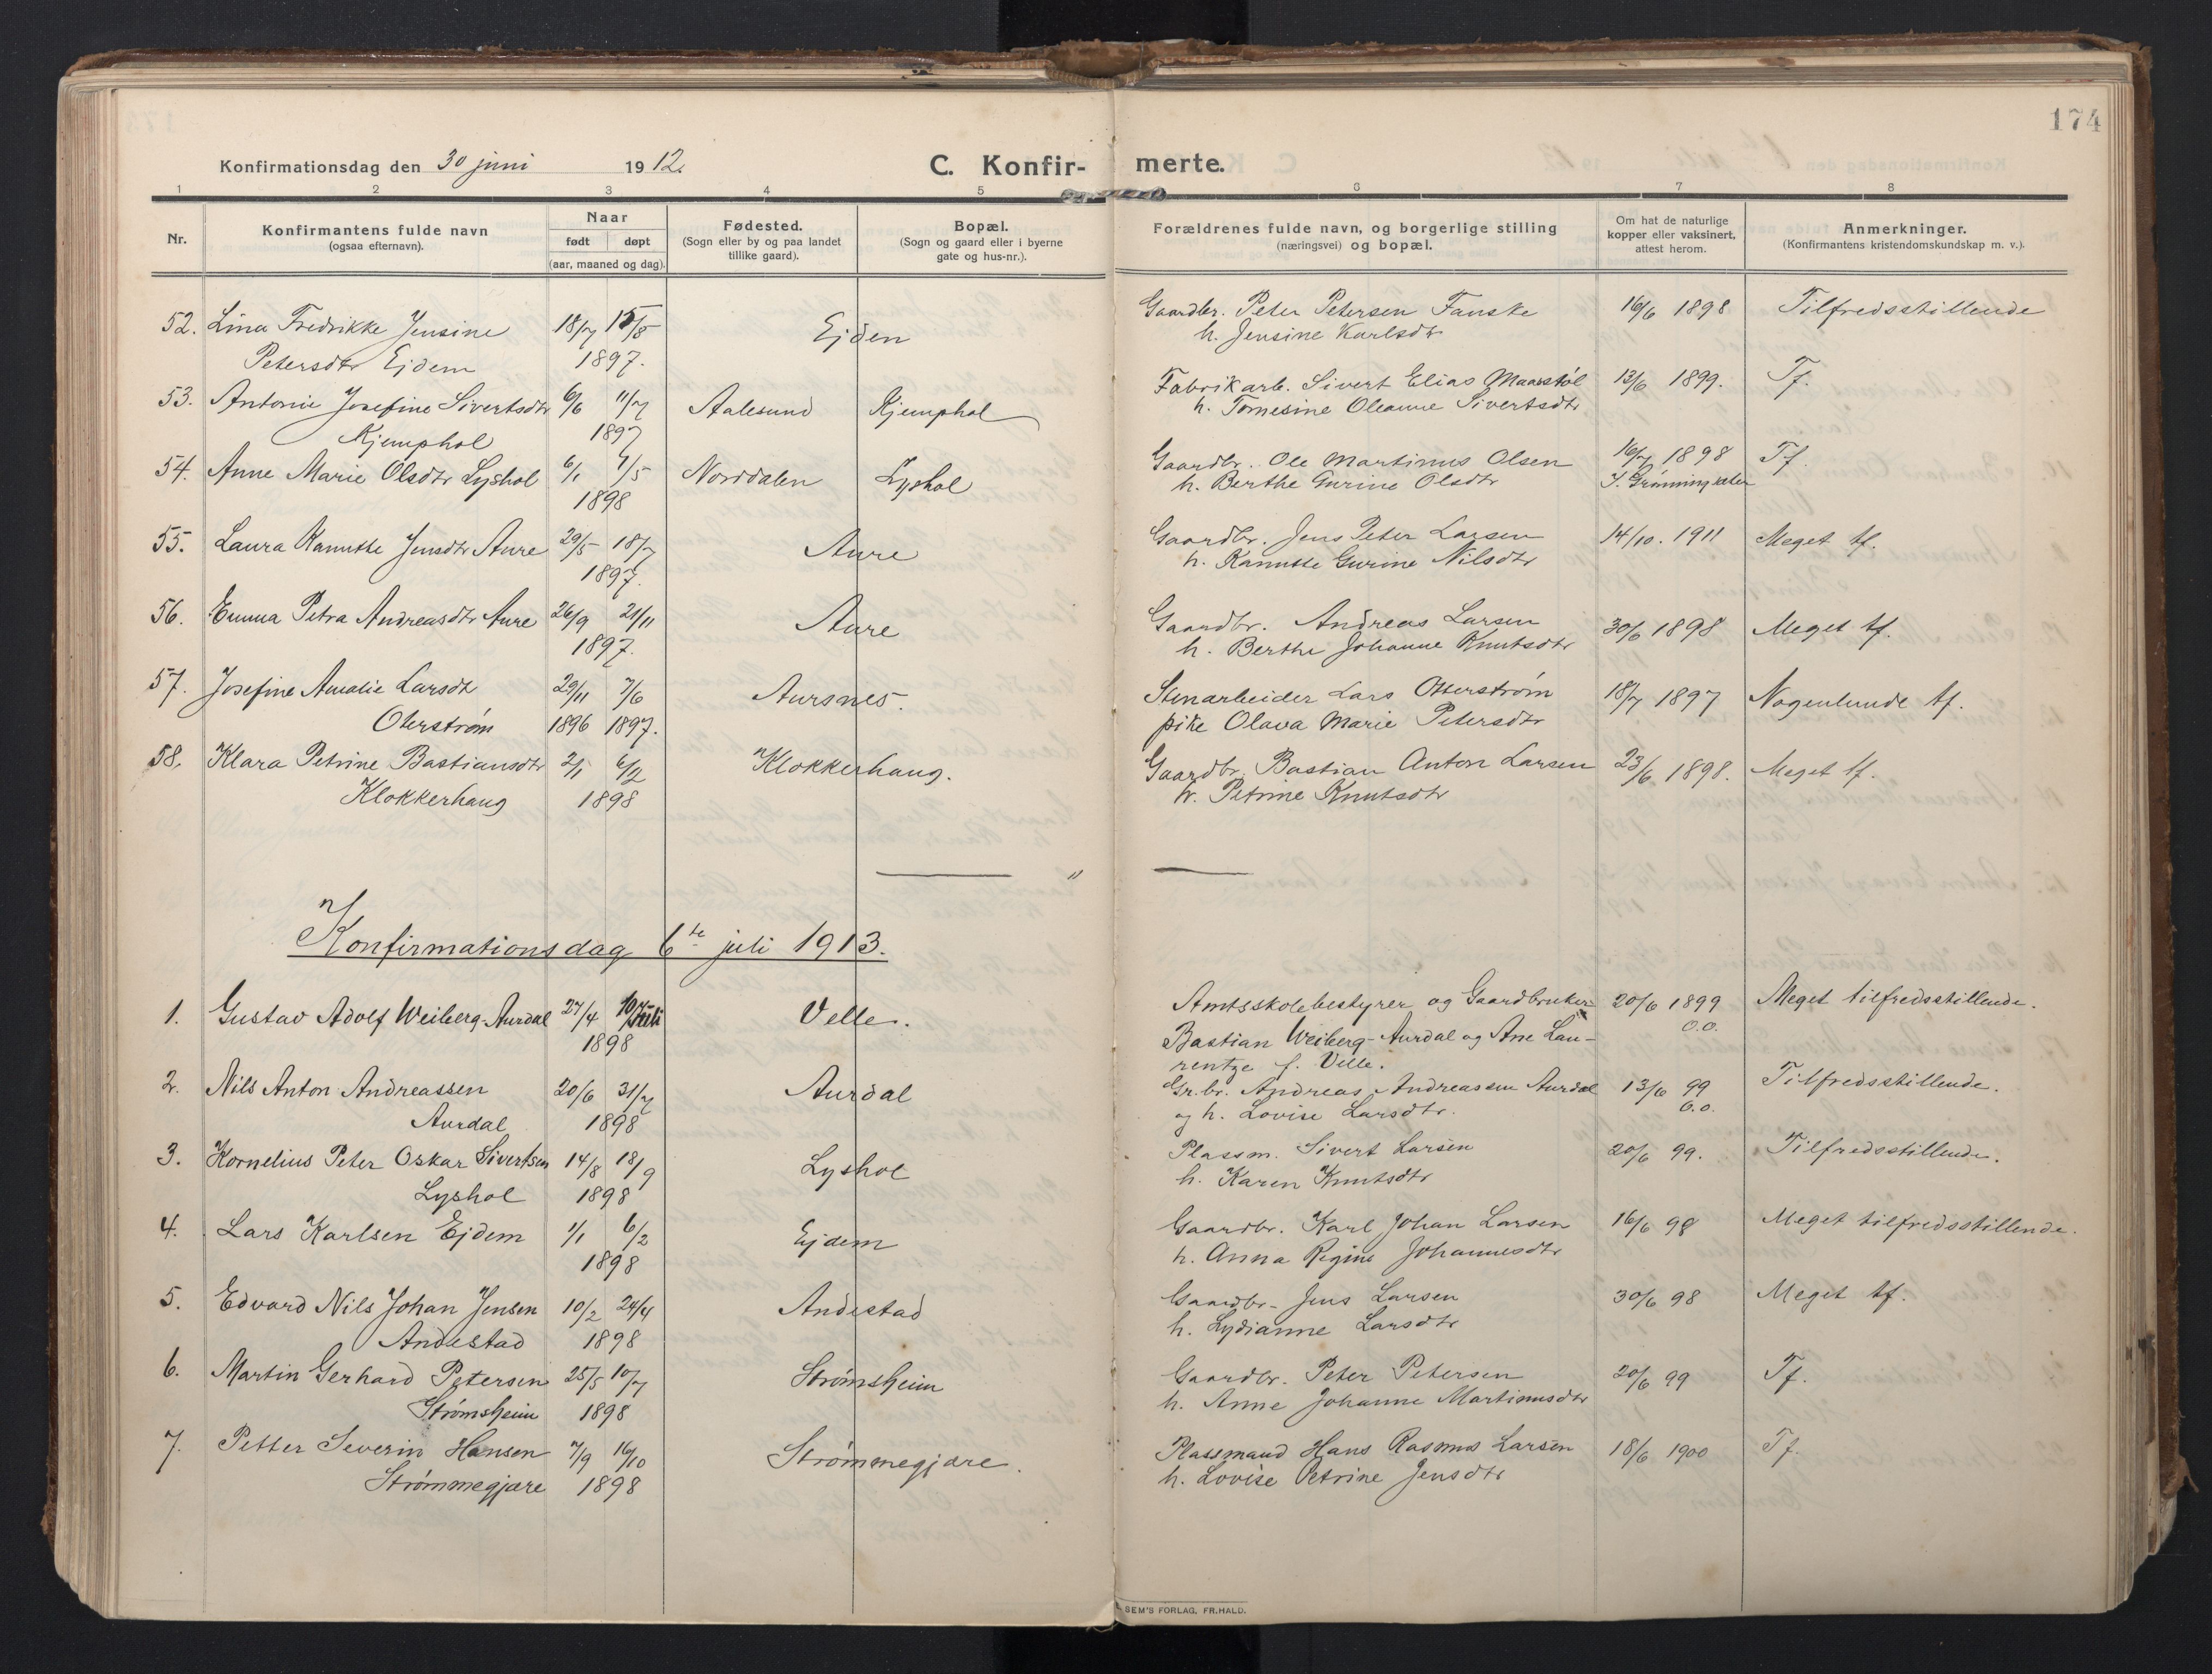 174
Konfirmationsdag den 30 juni 1912. C. Konfir- merte.
1 2 3 4 5 6 7 8
Nr. Konfirmantens fulde navn (ogsaa efternavn). Naar født døpt (aar, maaned og dag). Fødested. (Sogn eller by og paa landet tillike gaard). Bopæl. (Sogn og gaard eller i byerne gate og hus-nr.). Forældrenes fulde navn, og borgerlige stilling (næringsvei) og bopæl. Om hat de naturlige kopper eller vaksinert, attest herom. Anmerkninger. (Konfirmantens kristendomskundskap m. v.).
52. Lina Fredrikke Jensine 18/7 15/8 Ejden Gaardbr. Peter Petersen Fauske 16/6 1898 Tilfredsstillende
Petersdtr Ejdem 1897. h. Jensine Karlsdtr
53. Antonie Josefine Sivertsdtr 6/6 11/7 Aalesund Kjemphol Fabrikarb. Sivert Elias Maasstøl 13/6 1899. Tf.
Kjemphol 1897 h. Tomesine Oleanne Sivertsdtr
54. Anne Marie Olsdtr Lyshol 6/1 1/5 Norddalen Lyshol Gaardbr. Ole Martinus Olsen 16/7 1898 Tf.
1898 h. Berthe Gurine Olsdtr J. Grønningsæter
55. Laura Kanutte Jensdtr Aure 29/5 18/7 Aure Gaardbr. Jens Peter Larsen 14/10. 1911 Meget tf.
1897. h. Kanutte Gurine Nilsdtr
56. Emma Petra Andreasdtr Aure 26/9 21/11 Aure Gaardbr. Andreas Larsen 30/6 1898 Meget tf.
1897. h. Berthe Johanne Knutsdtr
57. Josefine Amalie Larsdtr 29/11 7/6 Aursnes. Stenarbeider Lars Otterstrøm 18/7 1897 Nogenlunde tf.
Oterstrøm 1896 1897. pike Olava Marie Petersdtr
58. Klara Petrine Bastiansdtr 2/1 6/2 Klokkerhaug. Gaardbr. Bastian Anton Larsen 23/6 1898. Meget tf.
Klokkerhaug 1898 h. Petrine Knutsdtr
"
Konfirmationsdag 6te juli 1913.
1. Gustav Adolf Weiberg-Aurdal 27/4 10/Juli Velle. Amtsskolebestyrer og Gaardbruker 20/6 1899 Meget tilfredsstillende.
1898 Bastian Weiberg-Aurdal og Ane Lau- o.o.
rentze f. Velle.
2. Nils Anton Andreassen 20/6 31/7 Aurdal Gr.br. Andreas Andreassen Aurdal 13/6 99 Tilfredsstillende.
Aurdal 1898 og h. Lovise Larsdtr. o.o.
3. Kornelius Peter Oskar Sivertsen 14/8 18/9 Lyshol Plassm. Sivert Larsen 20/6 99. Tilfredsstillende.
Lyshol 1898 h. Karen Knutsdtr
4. Lars Karlsen Ejdem 1/1 6/2 Ejdem Gaardbr. Karl Johan Larsen 16/6 98 Meget tilfredsstillende.
1898 h. Anna Regine Johannesdtr
5. Edvard Nils Johan Jensen 10/2 24/4 Andestad Gaardbr. Jens Larsen 30/6 98 Meget tf.
Andestad 1898 h. Lydianne Larsdtr
6. Martin Gerhard Petersen 25/5 10/7 Strømsheim Gaardbr. Peter Petersen 20/6 99 Tf.
Strømsheim 1898 h. Anne Johanne Martinusdtr
7. Petter Severin Hansen 7/9 16/10 Strømmegjære. Plassmand Hans Rasmus Larsen 18/6 1900 Tf.
Strømmegjære 1898 h. Lovise Petrine Jensdtr
SEM'S FORLAG, FR. HALD.